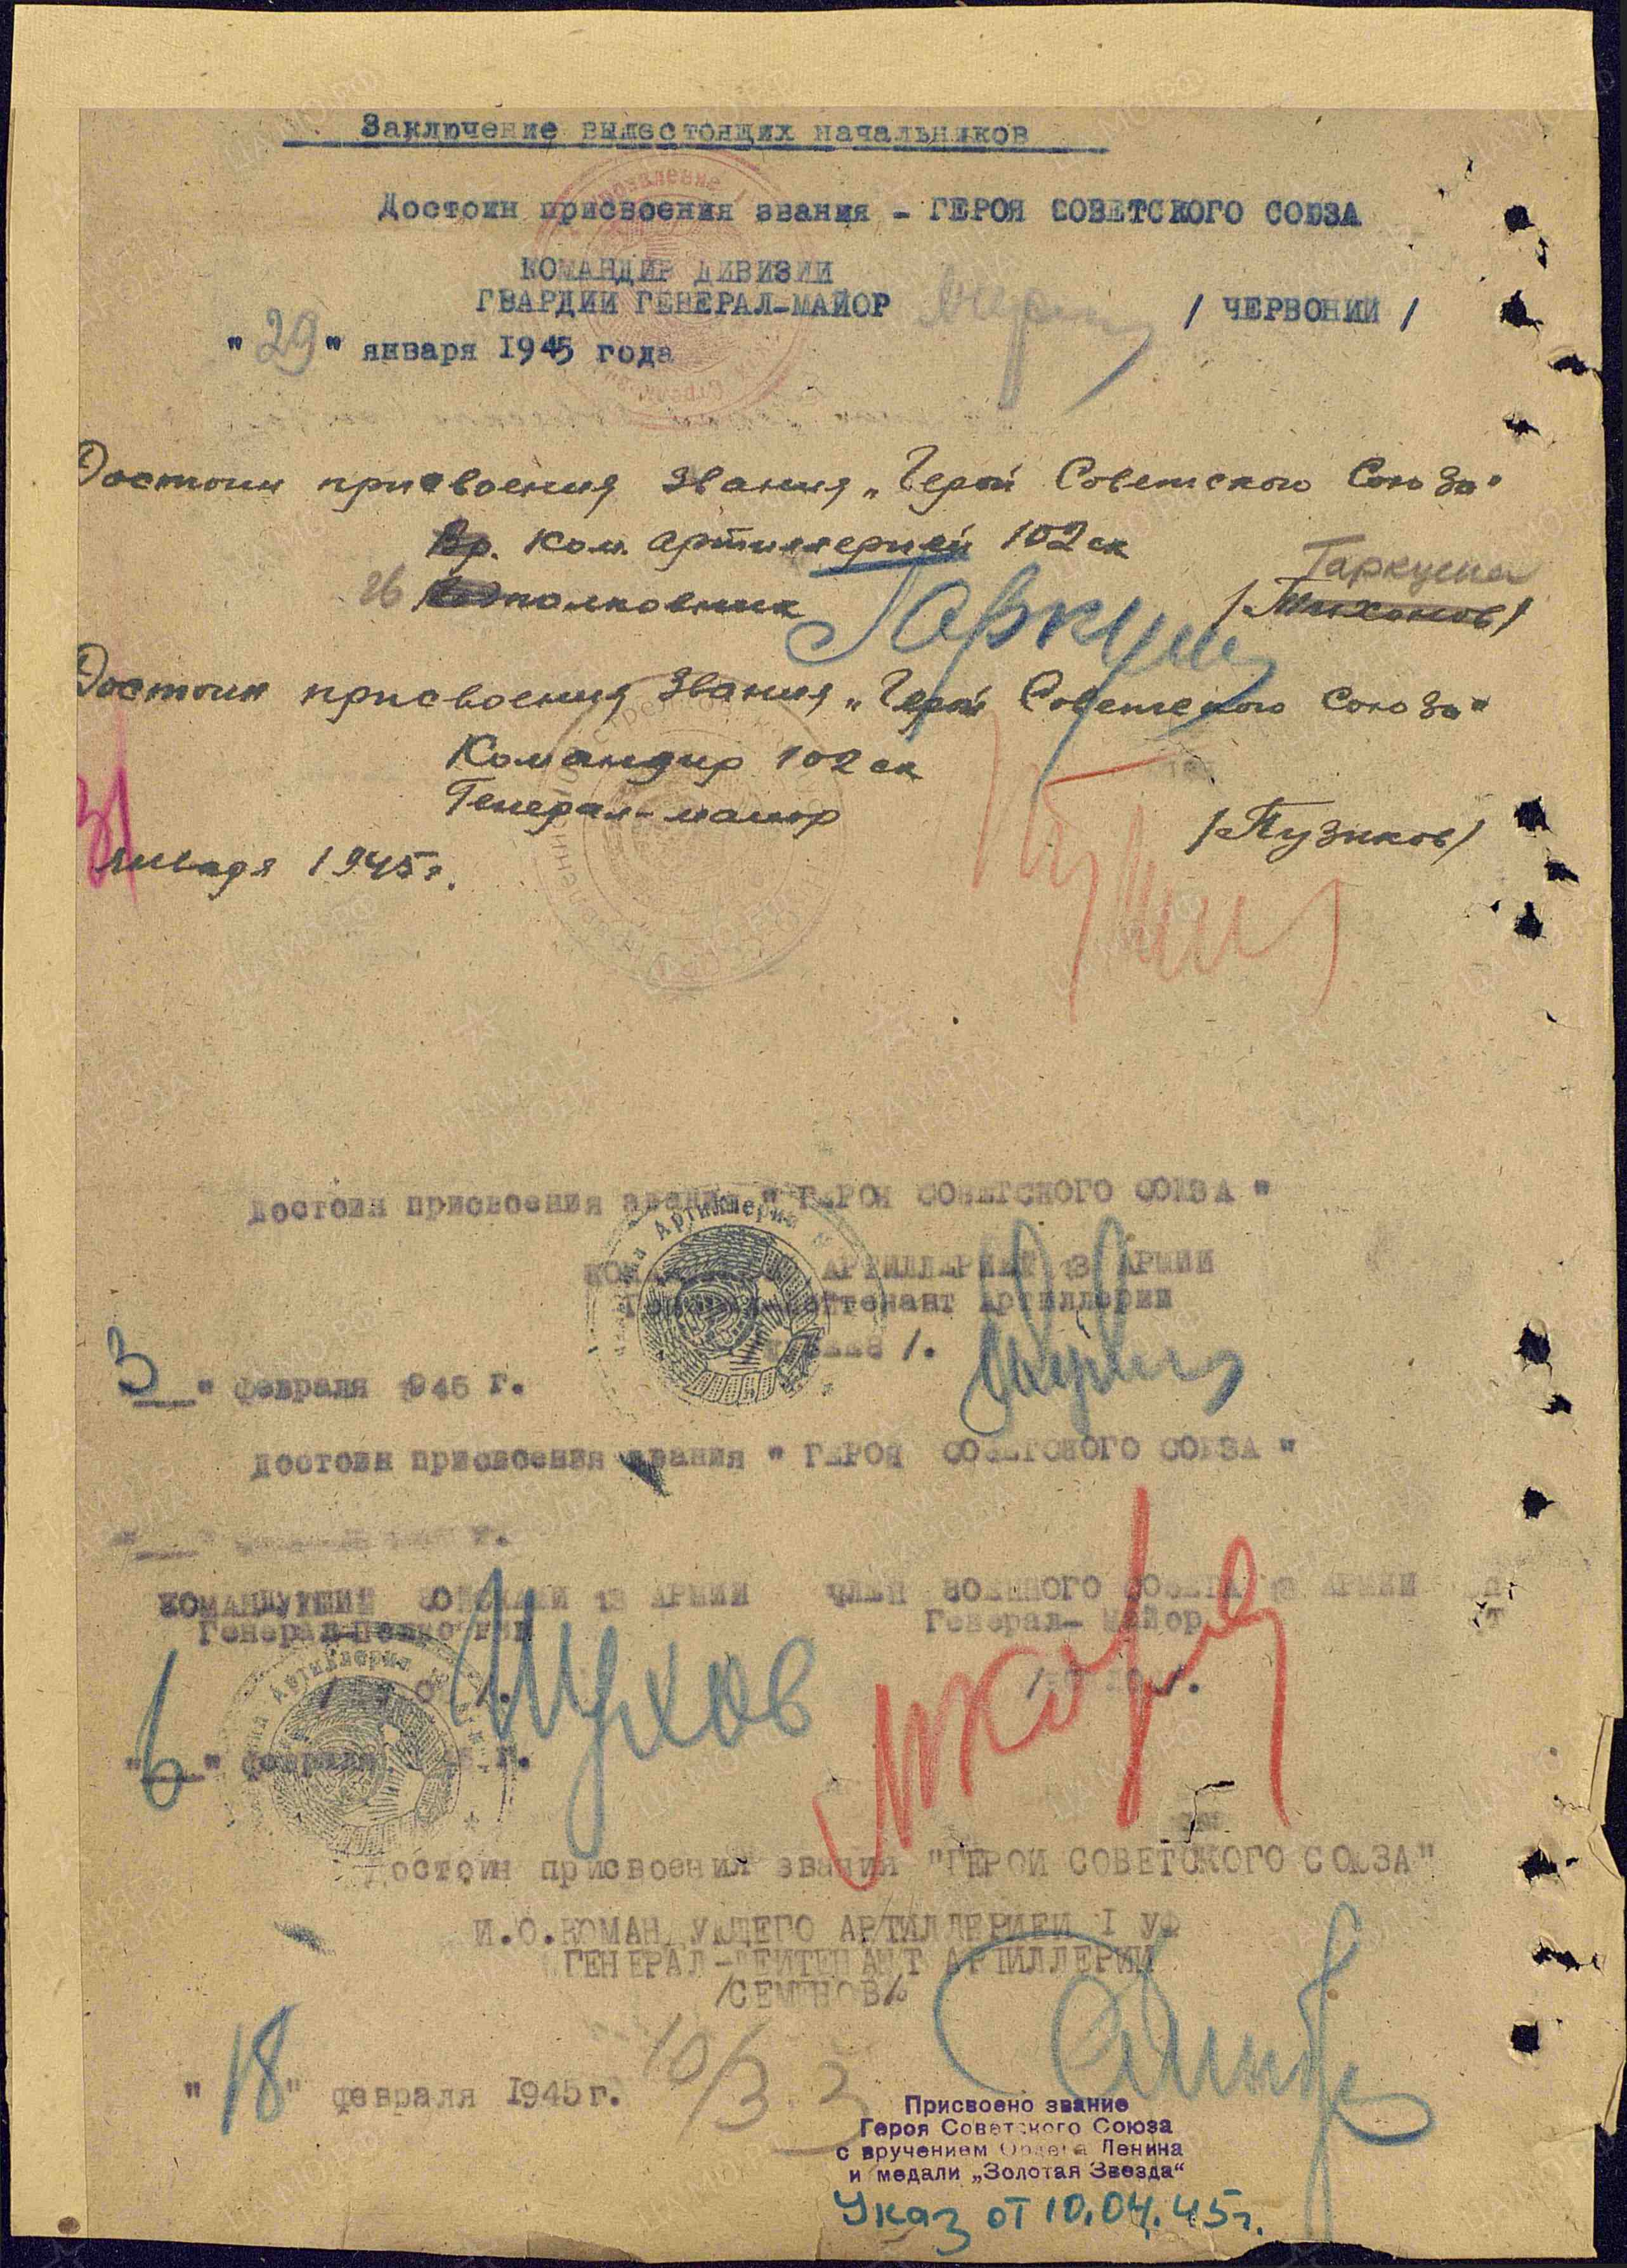 Заключение вышестоящих начальников
Достоин присвоения звания - ГЕРОЯ СОВЕТСКОГО СОЮЗА
КОМАНДИР ДИВИЗИИ
ГВАРДИИ ГЕНЕРАЛ-МАЙОР / ЧЕРВОНИЙ /
"29" января 1945 года
Достоин присвоения звания „Герой Советского Союза"
Вр. Ком. артиллерией 102 ск
полковник Гаркуша Гаркуша
/Тихонов/
Достоин присвоения звания „Герой Советского Союза"
Командир 102 ск
Генерал-майор
/Пузиков/
31
января 1945г.
достоин присвоения звания " ГЕРОЯ СОВЕТСКОГО СОЮЗА "
Артиллерия
АРТИЛЛЕРИЕЙ 13 АРМИИ
Артиллерии
3 " февраля 1945 г.
достоин присвоения звания " ГЕРОЯ СОВЕТСКОГО СОЮЗА "
г.
КОМАНДУЮЩИЙ ВОЙСКАМИ 13 АРМИИ ЧЛЕН ВОЕННОГО СОВЕТА 13 АРМИИ
Генерал-Полковник Генерал- Майор
Артиллерия
Пухов
"6" февраля г.
достоин присвоения звания "ГЕРОЙ СОВЕТСКОГО СОЮЗА"
И.О.КОМАНДУЮЩЕГО АРТИЛЛЕРИЕЙ I УФ
ГЕНЕРАЛ-ЛЕЙТЕНАНТ АРТИЛЛЕРИИ
/СЕМЕНОВ/
"18" февраля 1945г.
10/3
Присвоено звание
Героя Советского Союза
с вручением Ордена Ленина
и медали „Золотая Звезда"
Указ от 10.04.45г.